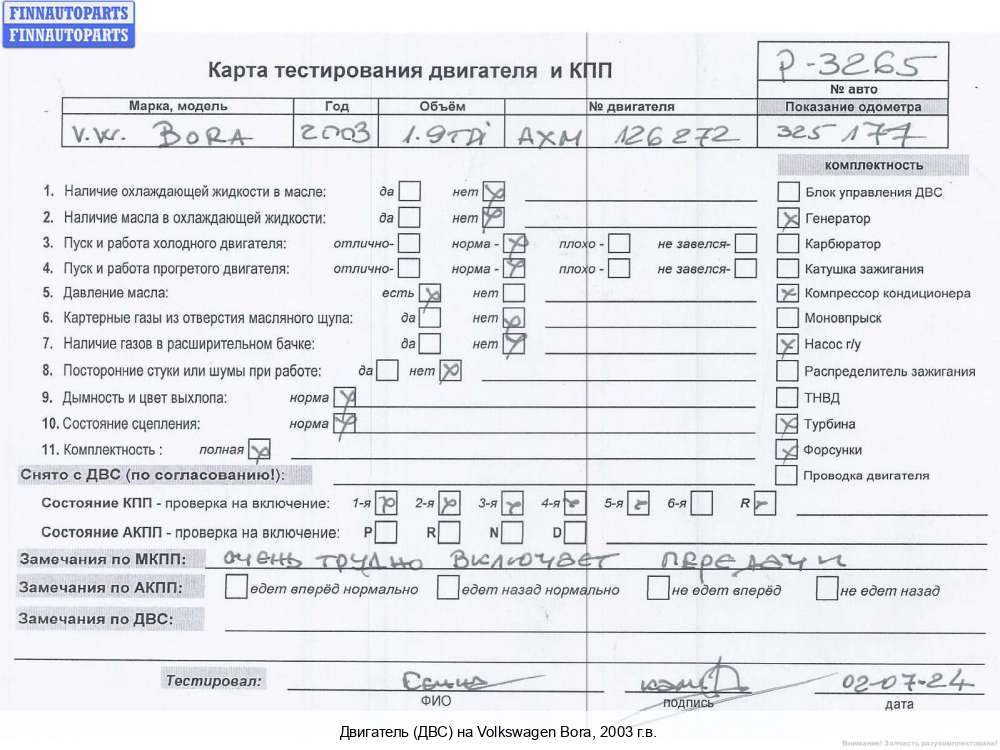 FINNAUTOPARTS
FINNAUTOPARTS
Карта тестирования двигателя и КПП
P-3265
№ авто
Марка, модель Год Объём № двигателя Показание одометра
V.W. BORA 2003 1.9TDi AXM 126272 325 177
комплектность
1. Наличие охлаждающей жидкости в масле: да нет Блок управления ДВС
2. Наличие масла в охлаждающей жидкости: да нет Генератор
3. Пуск и работа холодного двигателя: отлично- норма - плохо - не завелся- Карбюратор
4. Пуск и работа прогретого двигателя: отлично- норма - плохо - не завелся- Катушка зажигания
5. Давление масла: есть нет Компрессор кондиционера
6. Картерные газы из отверстия масляного щупа: да нет Моновпрыск
7. Наличие газов в расширительном бачке: да нет Насос г/у
8. Посторонние стуки или шумы при работе: да нет Распределитель зажигания
9. Дымность и цвет выхлопа: норма ТНВД
10. Состояние сцепления: норма Турбина
11. Комплектность : полная Форсунки
Снято с ДВС (по согласованию!): Проводка двигателя
Состояние КПП - проверка на включение: 1-я 2-я 3-я 4-я 5-я 6-я R
Состояние АКПП - проверка на включение: P R N D
Замечания по МКПП: ОЧЕНЬ ТРУДНО ВКЛЮЧАЕТ ПЕРЕДАЧИ
Замечания по АКПП: едет вперёд нормально едет назад нормально не едет вперёд не едет назад
Замечания по ДВС:
Тестировал: 02-07-24
ФИО подпись дата
Двигатель (ДВС) на Volkswagen Bora, 2003 г.в.
Внимание! Запчасть разукомплектована!